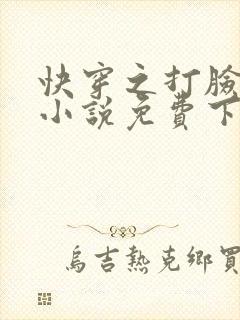 快穿之打臉
小說免費下
烏吉熱克鄉買